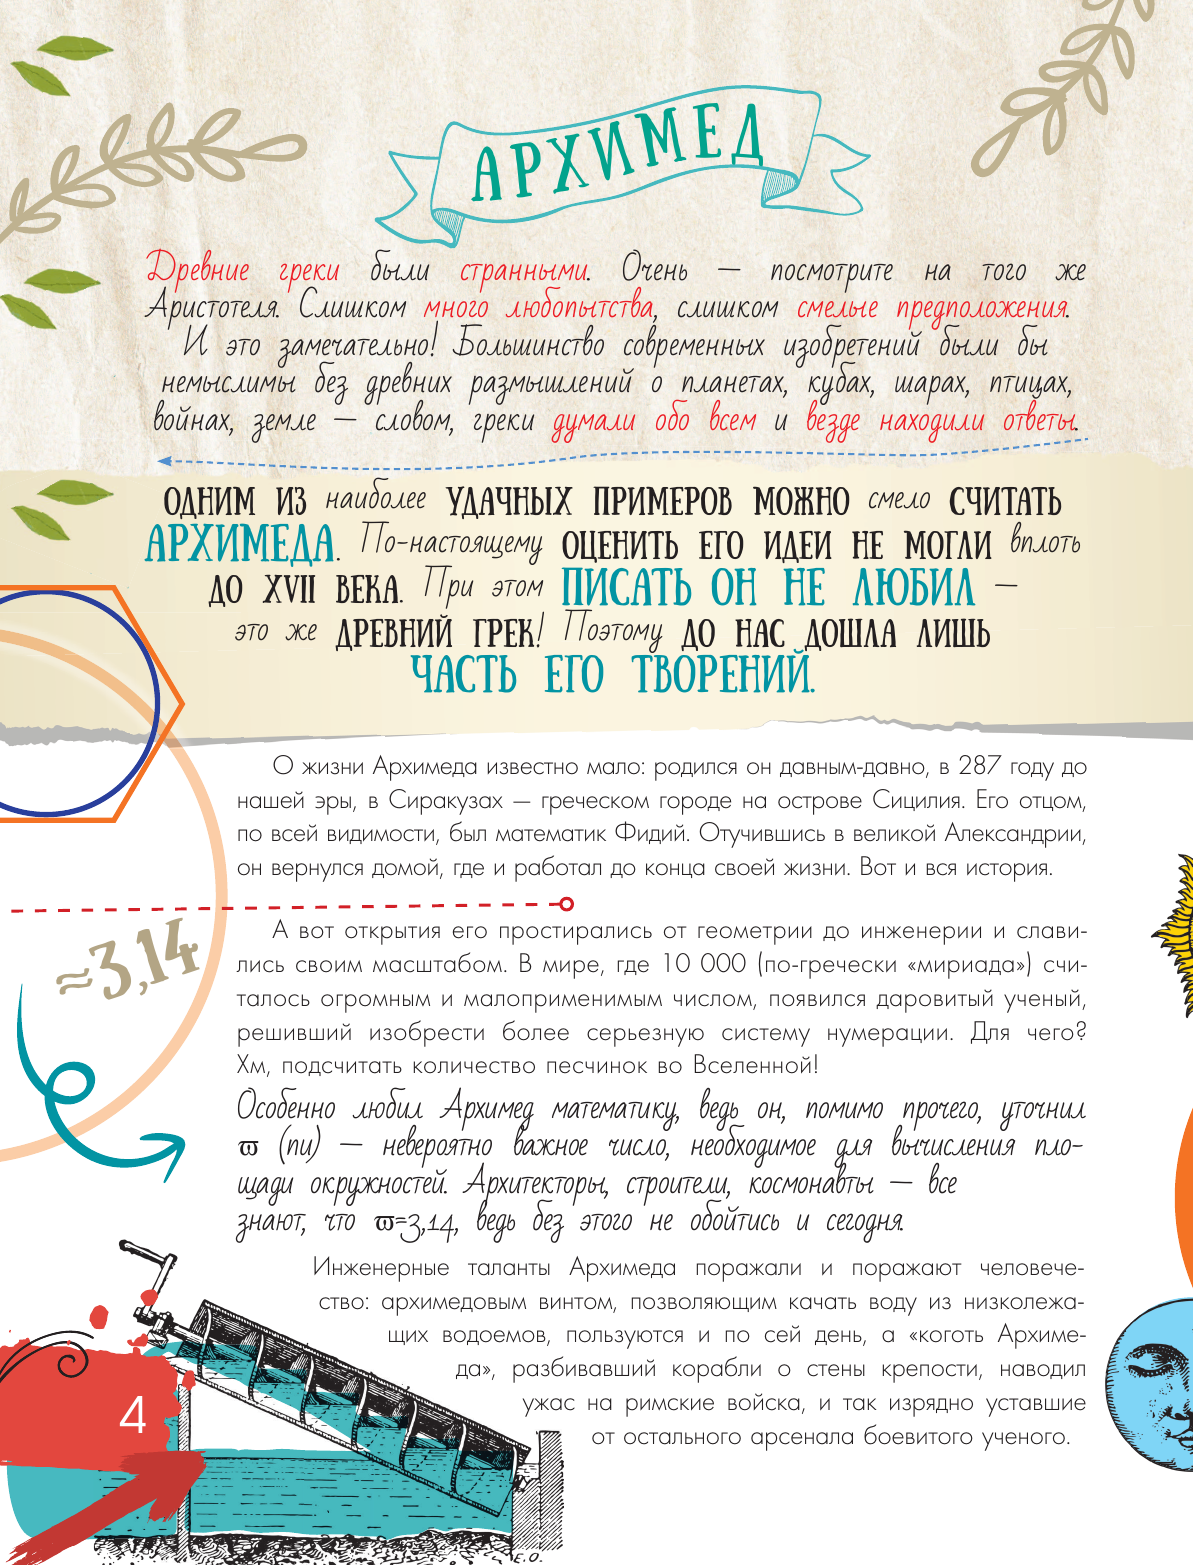 АРХИМЕД
Древние греки были странными. Очень — посмотрите на того же
Аристотеля. Слишком много любопытства, слишком смелые предположения.
И это замечательно! Большинство современных изобретений были бы
немыслимы без древних размышлений о планетах, кубах, шарах, птицах,
войнах, земле — словом, греки думали обо всем и везде находили ответы.
ОДНИМ ИЗ наиболее УДАЧНЫХ ПРИМЕРОВ МОЖНО смело СЧИТАТЬ
АРХИМЕДА. По-настоящему ОЦЕНИТЬ ЕГО ИДЕИ НЕ МОГЛИ вплоть
ДО XVII ВЕКА. При этом ПИСАТЬ ОН НЕ ЛЮБИЛ —
это же ДРЕВНИЙ ГРЕК! Поэтому ДО НАС ДОШЛА ЛИШЬ
ЧАСТЬ ЕГО ТВОРЕНИЙ.
О жизни Архимеда известно мало: родился он давным-давно, в 287 году до
нашей эры, в Сиракузах — греческом городе на острове Сицилия. Его отцом,
по всей видимости, был математик Фидий. Отучившись в великой Александрии,
он вернулся домой, где и работал до конца своей жизни. Вот и вся история.
А вот открытия его простирались от геометрии до инженерии и слави-
лись своим масштабом. В мире, где 10 000 (по-гречески «мириада») счи-
талось огромным и малоприменимым числом, появился даровитый ученый,
решивший изобрести более серьезную систему нумерации. Для чего?
Хм, подсчитать количество песчинок во Вселенной!
≈3,14
Особенно любил Архимед математику, ведь он, помимо прочего, уточнил
ϖ (пи) — невероятно важное число, необходимое для вычисления пло-
щади окружностей. Архитекторы, строители, космонавты — все
знают, что ϖ=3,14, ведь без этого не обойтись и сегодня.
Инженерные таланты Архимеда поражали и поражают человече-
ство: архимедовым винтом, позволяющим качать воду из низколежа-
щих водоемов, пользуются и по сей день, а «коготь Архиме-
да», разбивавший корабли о стены крепости, наводил
ужас на римские войска, и так изрядно уставшие
от остального арсенала боевитого ученого.
4
E.O.